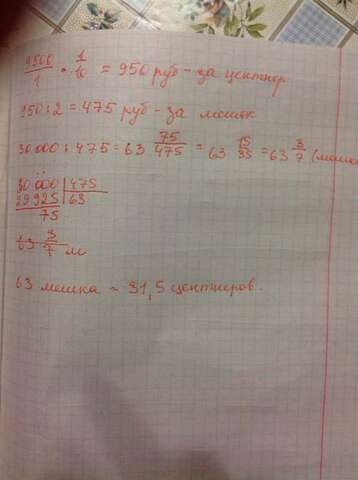 9500/1 · 1/10 = 950 руб - за центнер
950 : 2 = 475 руб - за мешок
30000 : 475 = 63 75/475 = 63 15/35 = 63 3/7 (мешка
30000 | 475
29925 | 63
75
63 3/7 м
63 мешка - 31,5 центнеров.